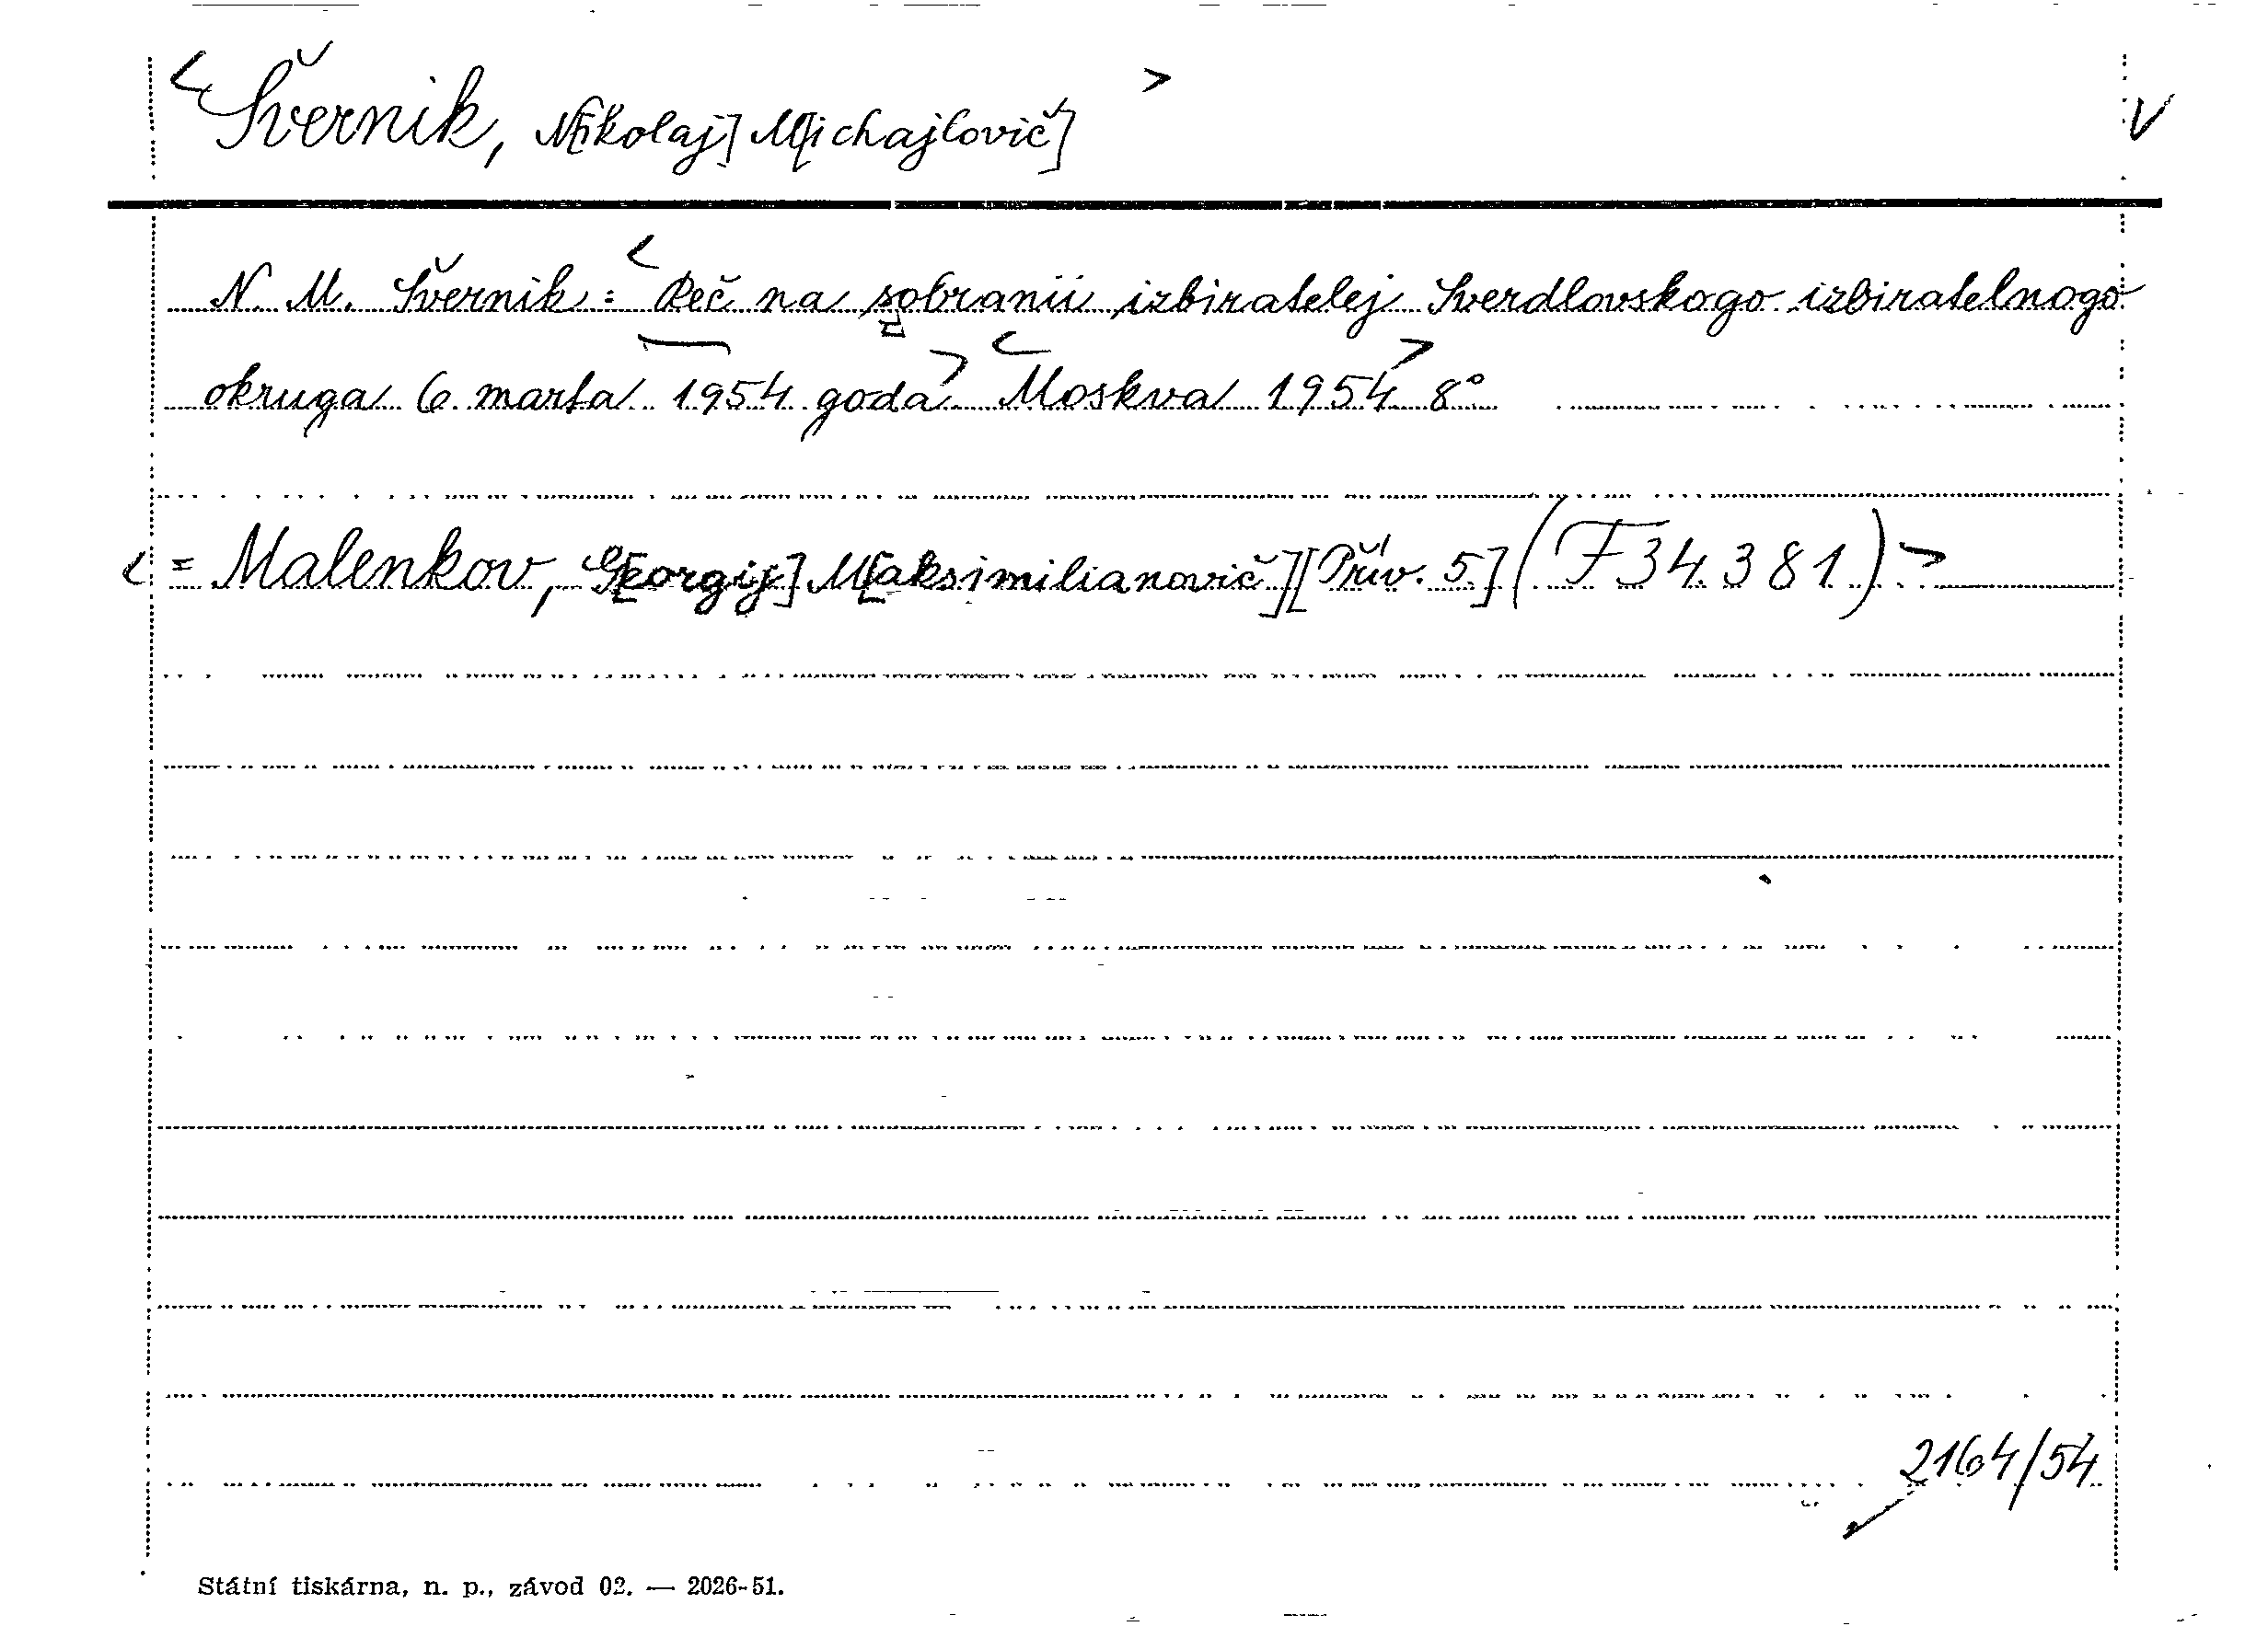 <Švernik, N[ikolaj] M[ichajlovič]>
V
N. M. Švernik: <Reč na sobranii izbiratelej Sverdlovskogo izbiratelnogo
okruga 6 marta 1954 goda> <Moskva 1954> 8°
<= Malenkov, G[eorgij] M[aksimilianovič] [Přív. 5] (F 34.381)>
2164/54
Státní tiskárna, n. p., závod 02. — 2026-51.